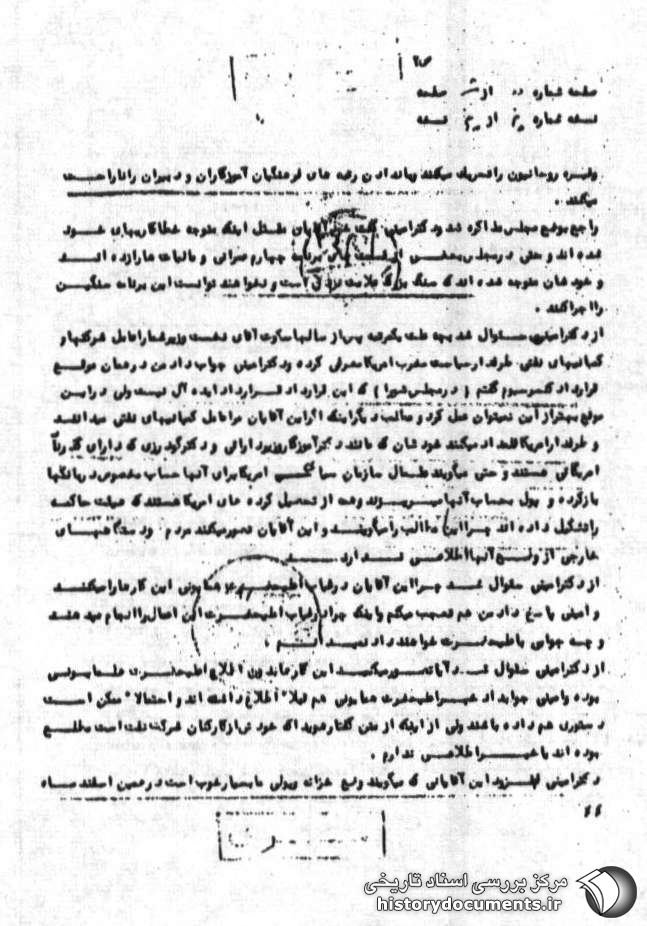 صفحه شماره از صفحه
نسخه شماره از نسخه
وغیره روحانیون را تحریک میکند وباندادن رتبه های فرهنگیان آموزگاران و دبیران را ناراحت
میکند .
راجع بوضع مجلس مذاکره شد ودکترامینی گفت آقایان مثل اینکه متوجه خطاکاریهای خود
شده اند و حتی درمجلس بعضی برنامه چهارم عمرانی و مالیات هارازده اند
و خودشان متوجه شده اند که سنگ بزرگ علامت نزدن است و نخواهند توانست این برنامه سنگین
را اجراکنند .
از دکترامینی سئوال شد بچه علت یکمرتبه پس از سالها سکوت آقای نخست وزیر شمارا عامل شرکتها و
کمپانیهای نفتی طرفدار سیاست مخرب امریکا معرفی کرده ودکترامینی جواب داد من در همان موقع
قرارداد کنسرسیوم گفتم ( در مجلس شورا ) که این قرارداد قرارداد ایده آل نیست ولی در این
موقع بهتر از این نمیتوان عمل کرد و جالب دیگر اینکه اگر این آقایان مرا عامل کمپانیهای نفتی میدانند
و طرفدار امریکا قلمداد میکنند خودشان که مانند دکتر آموزگار یزیدی ارانی و دکتر گودرزی که دارای
امریکائی هستند و حتی میگویند سازمان سیا امریکا برای آنها حساب مخصوص در بانکها
باز کرده و پول بحساب آنها میریزند وهمه از تحصیل کرده های امریکا هستند که هیئت حاکمه
را تشکیل داده اند چرا این مطالب را میگویند و این آقایان تصور میکنند مردم و دستگاههای
خارجی از وضع آنها اطلاعی ندارد
از دکترامینی سئوال شد چرا این آقایان در غیاب اعلیحضرت همایونی این کارها را میکنند
و امینی پاسخ داد من هم تعجب میکنم و اینکه چرا در غیاب اعلیحضرت این اعمال را انجام میدهند
و چه جوابی باعلیحضرت خواهند داد نمیدانم .
از دکترامینی سئوال شد آیا تصور میکنید این کارها بدون اطلاع اعلیحضرت همایونی
بوده وامینی جواب داد خیر اعلیحضرت همایونی هم قبلا اطلاع داشته اند و احتمالا ممکن است
دستوری هم داده باشند ولی از اینکه از متن گفتار هویدا که خودش از کارکنان شرکت نفت است مطلع
بوده اند یا خیر اطلاعی ندارم .
دکترامینی افزود این آقایانی که میگویند وضع خزانه وپولی ما بسیار خوب است در همین اسفند ماه
مرکز بررسی اسناد تاریخی
historydocuments.ir